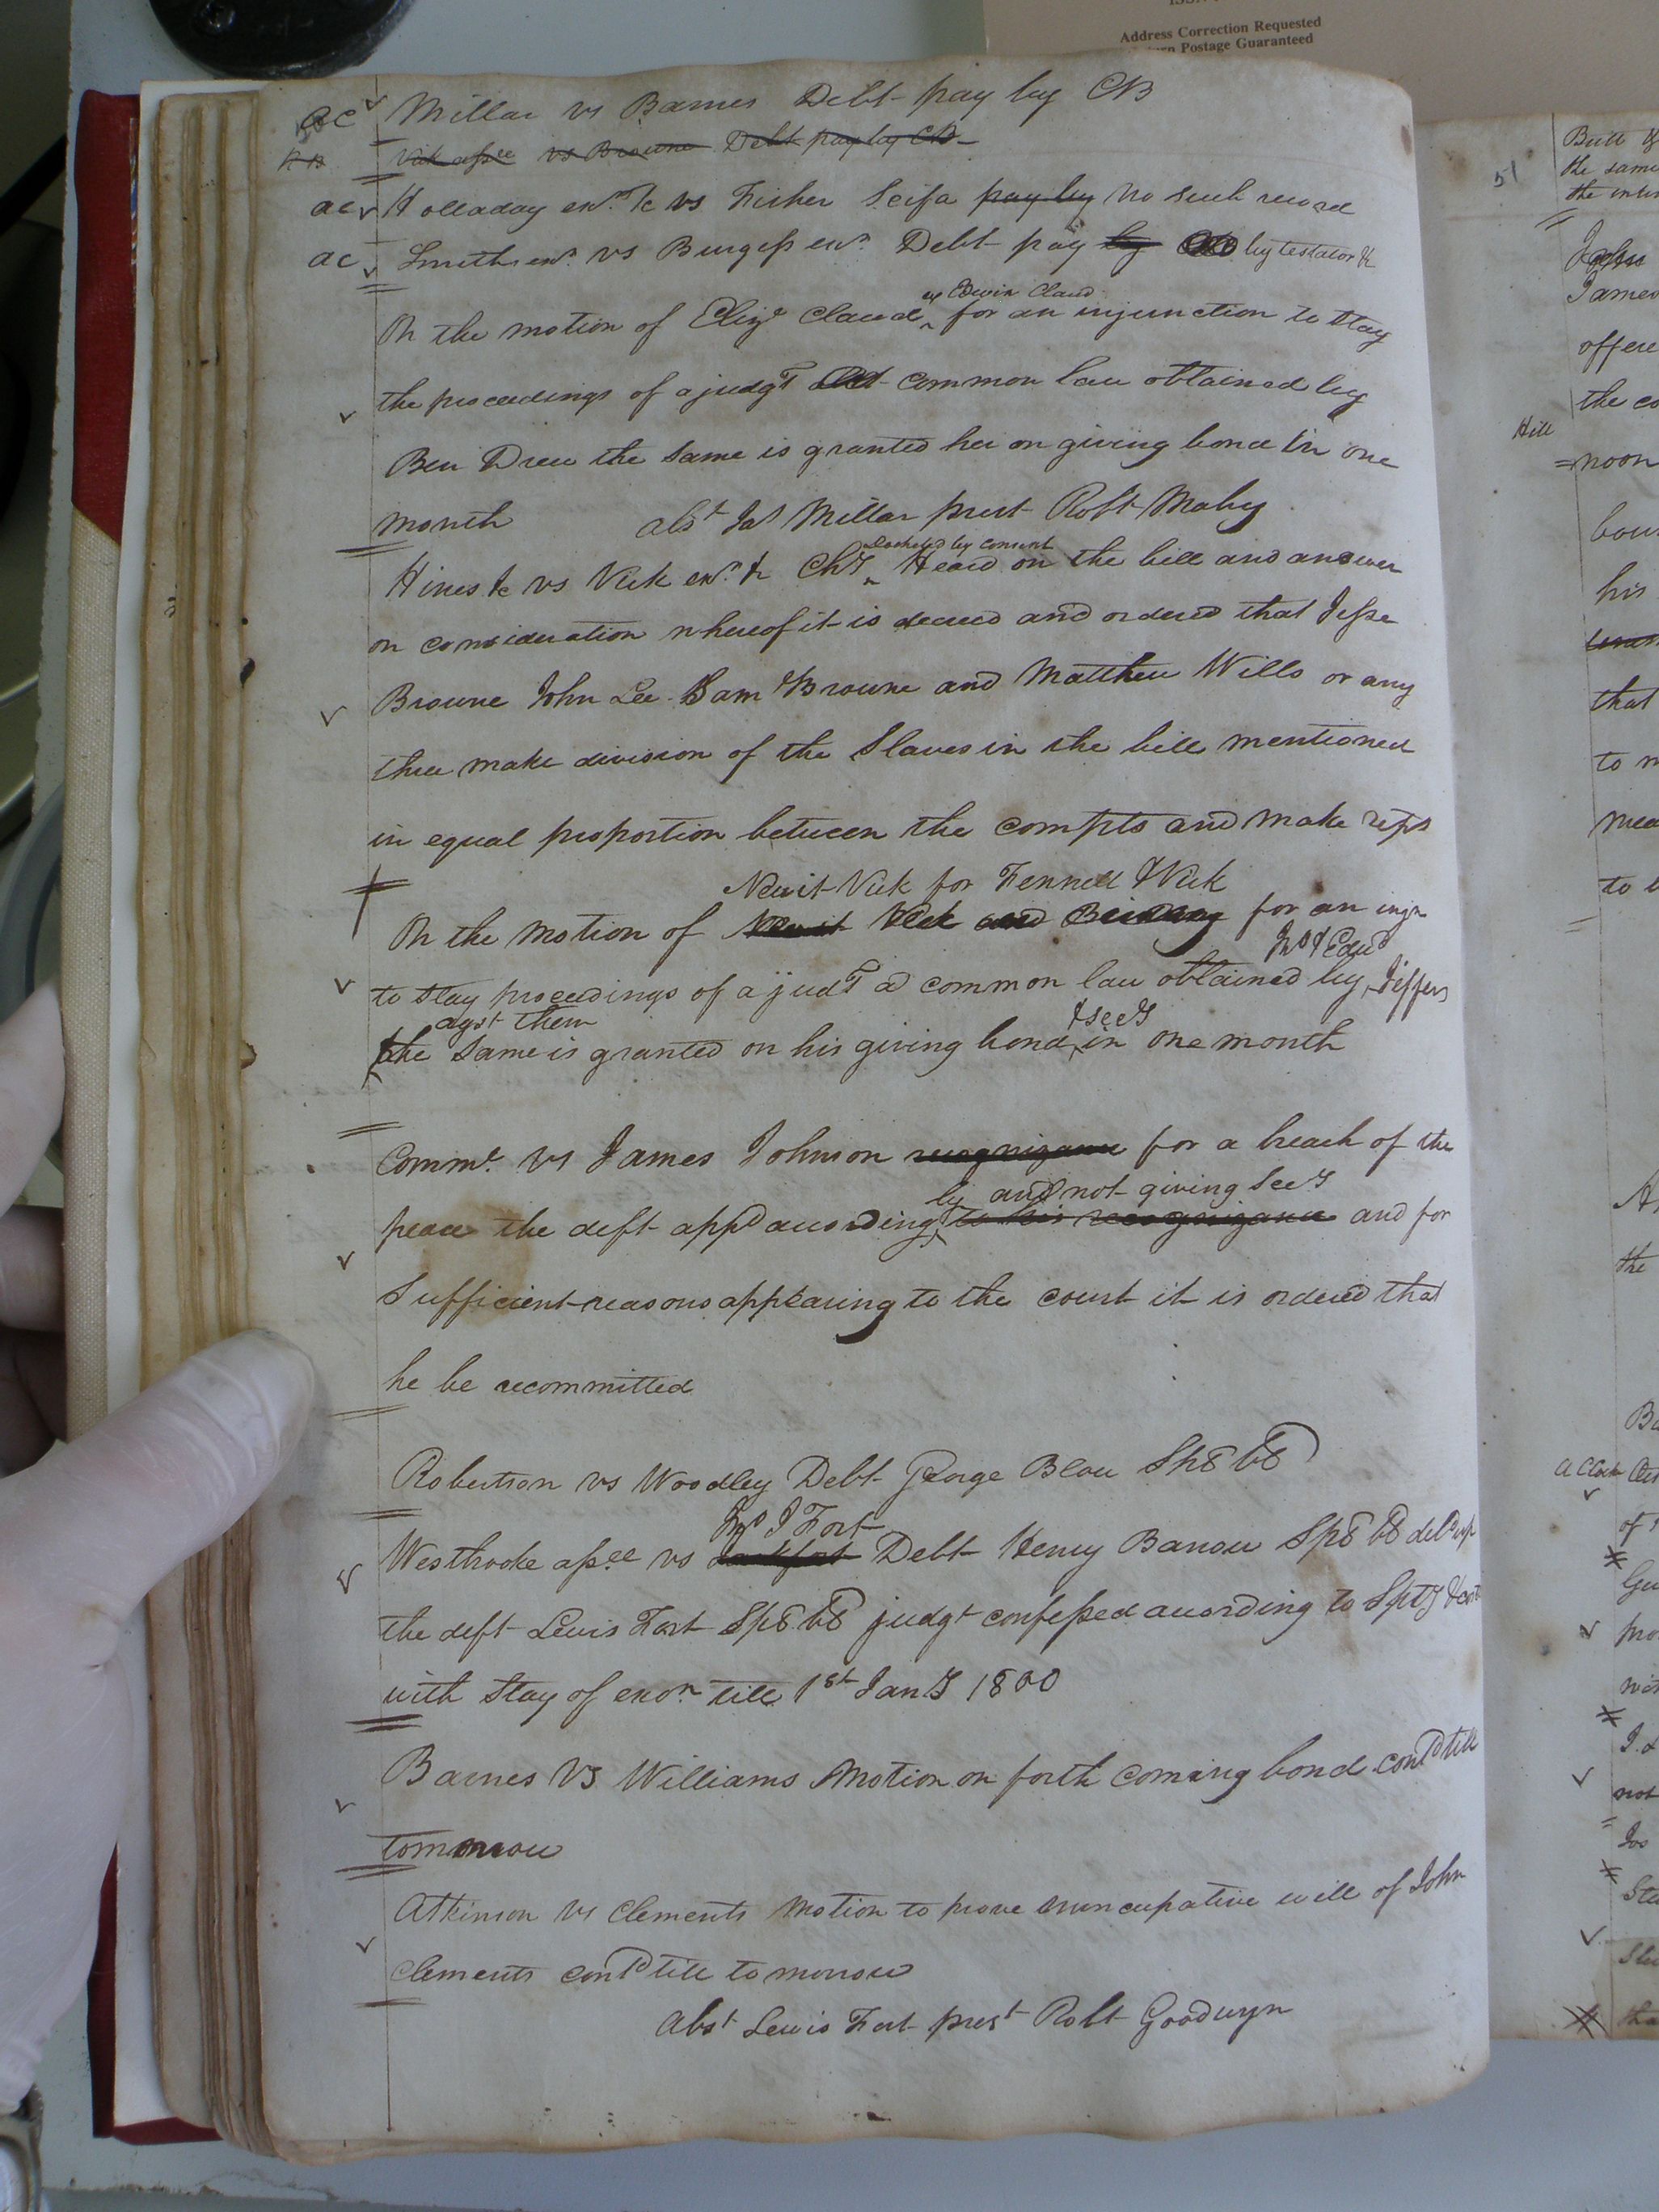 Address Correction Requested
Return Postage Guaranteed
ac Millar vs Barnes Debt pay by CB
Vick assee vs Browne Debt pay by CB
ac Holladay exr &c vs Fisher Scifa pay by No such record
ac Smith exr vs Burgess exr Debt pay by by testator &c
Edwin Claud
On the motion of Eliza Claud for an injunction to stay
the proceedings of a judgt at common law obtained by
Ben Drew the same is granted her on giving bond in one
month abst Jas Millar prest Robt Mabry
docketed by consent
Hines &c vs Vick exr &c Chy Heard on the bill and answer
on consideration whereof it is decreed and ordered that Jesse
Browne John Lee Saml Browne and Matthew Wills or any
three make division of the Slaves in the bill mentioned
in equal proportion between the complts and make rept
Newit Vick for Fennell & Vick
On the motion of Newit Vick and for an injn
Jno & Edwd
to stay proceedings of a judgt at common law obtained by Jeffers
agst them & secy
the same is granted on his giving bond in one month
Commth vs James Johnson recognizance for a breach of the
by and not giving secy
peace the deft appd according to his recognizance and for
Sufficient reasons appearing to the court it is ordered that
he be recommitted
Robertson vs Woodley Debt George Blow
Jno J Fort
Westbrooke assee vs Debt Henry Barrow Sp8 b8 deld up
the deft Lewis Fort Sp8 b8 judgt confessed according to Spty & cost
with Stay of exon till 1st Jany 1800
Barnes vs Williams Motion on forth coming bond contd till
tomorrow
Atkinson vs Clements Motion to prove nuncupative will of John
Clements contd till tomorrow
Abst Lewis Fort prest Robt Goodwyn
51
the same
James
offere
the co
Hill
noon
his
that
to m
the
of
not